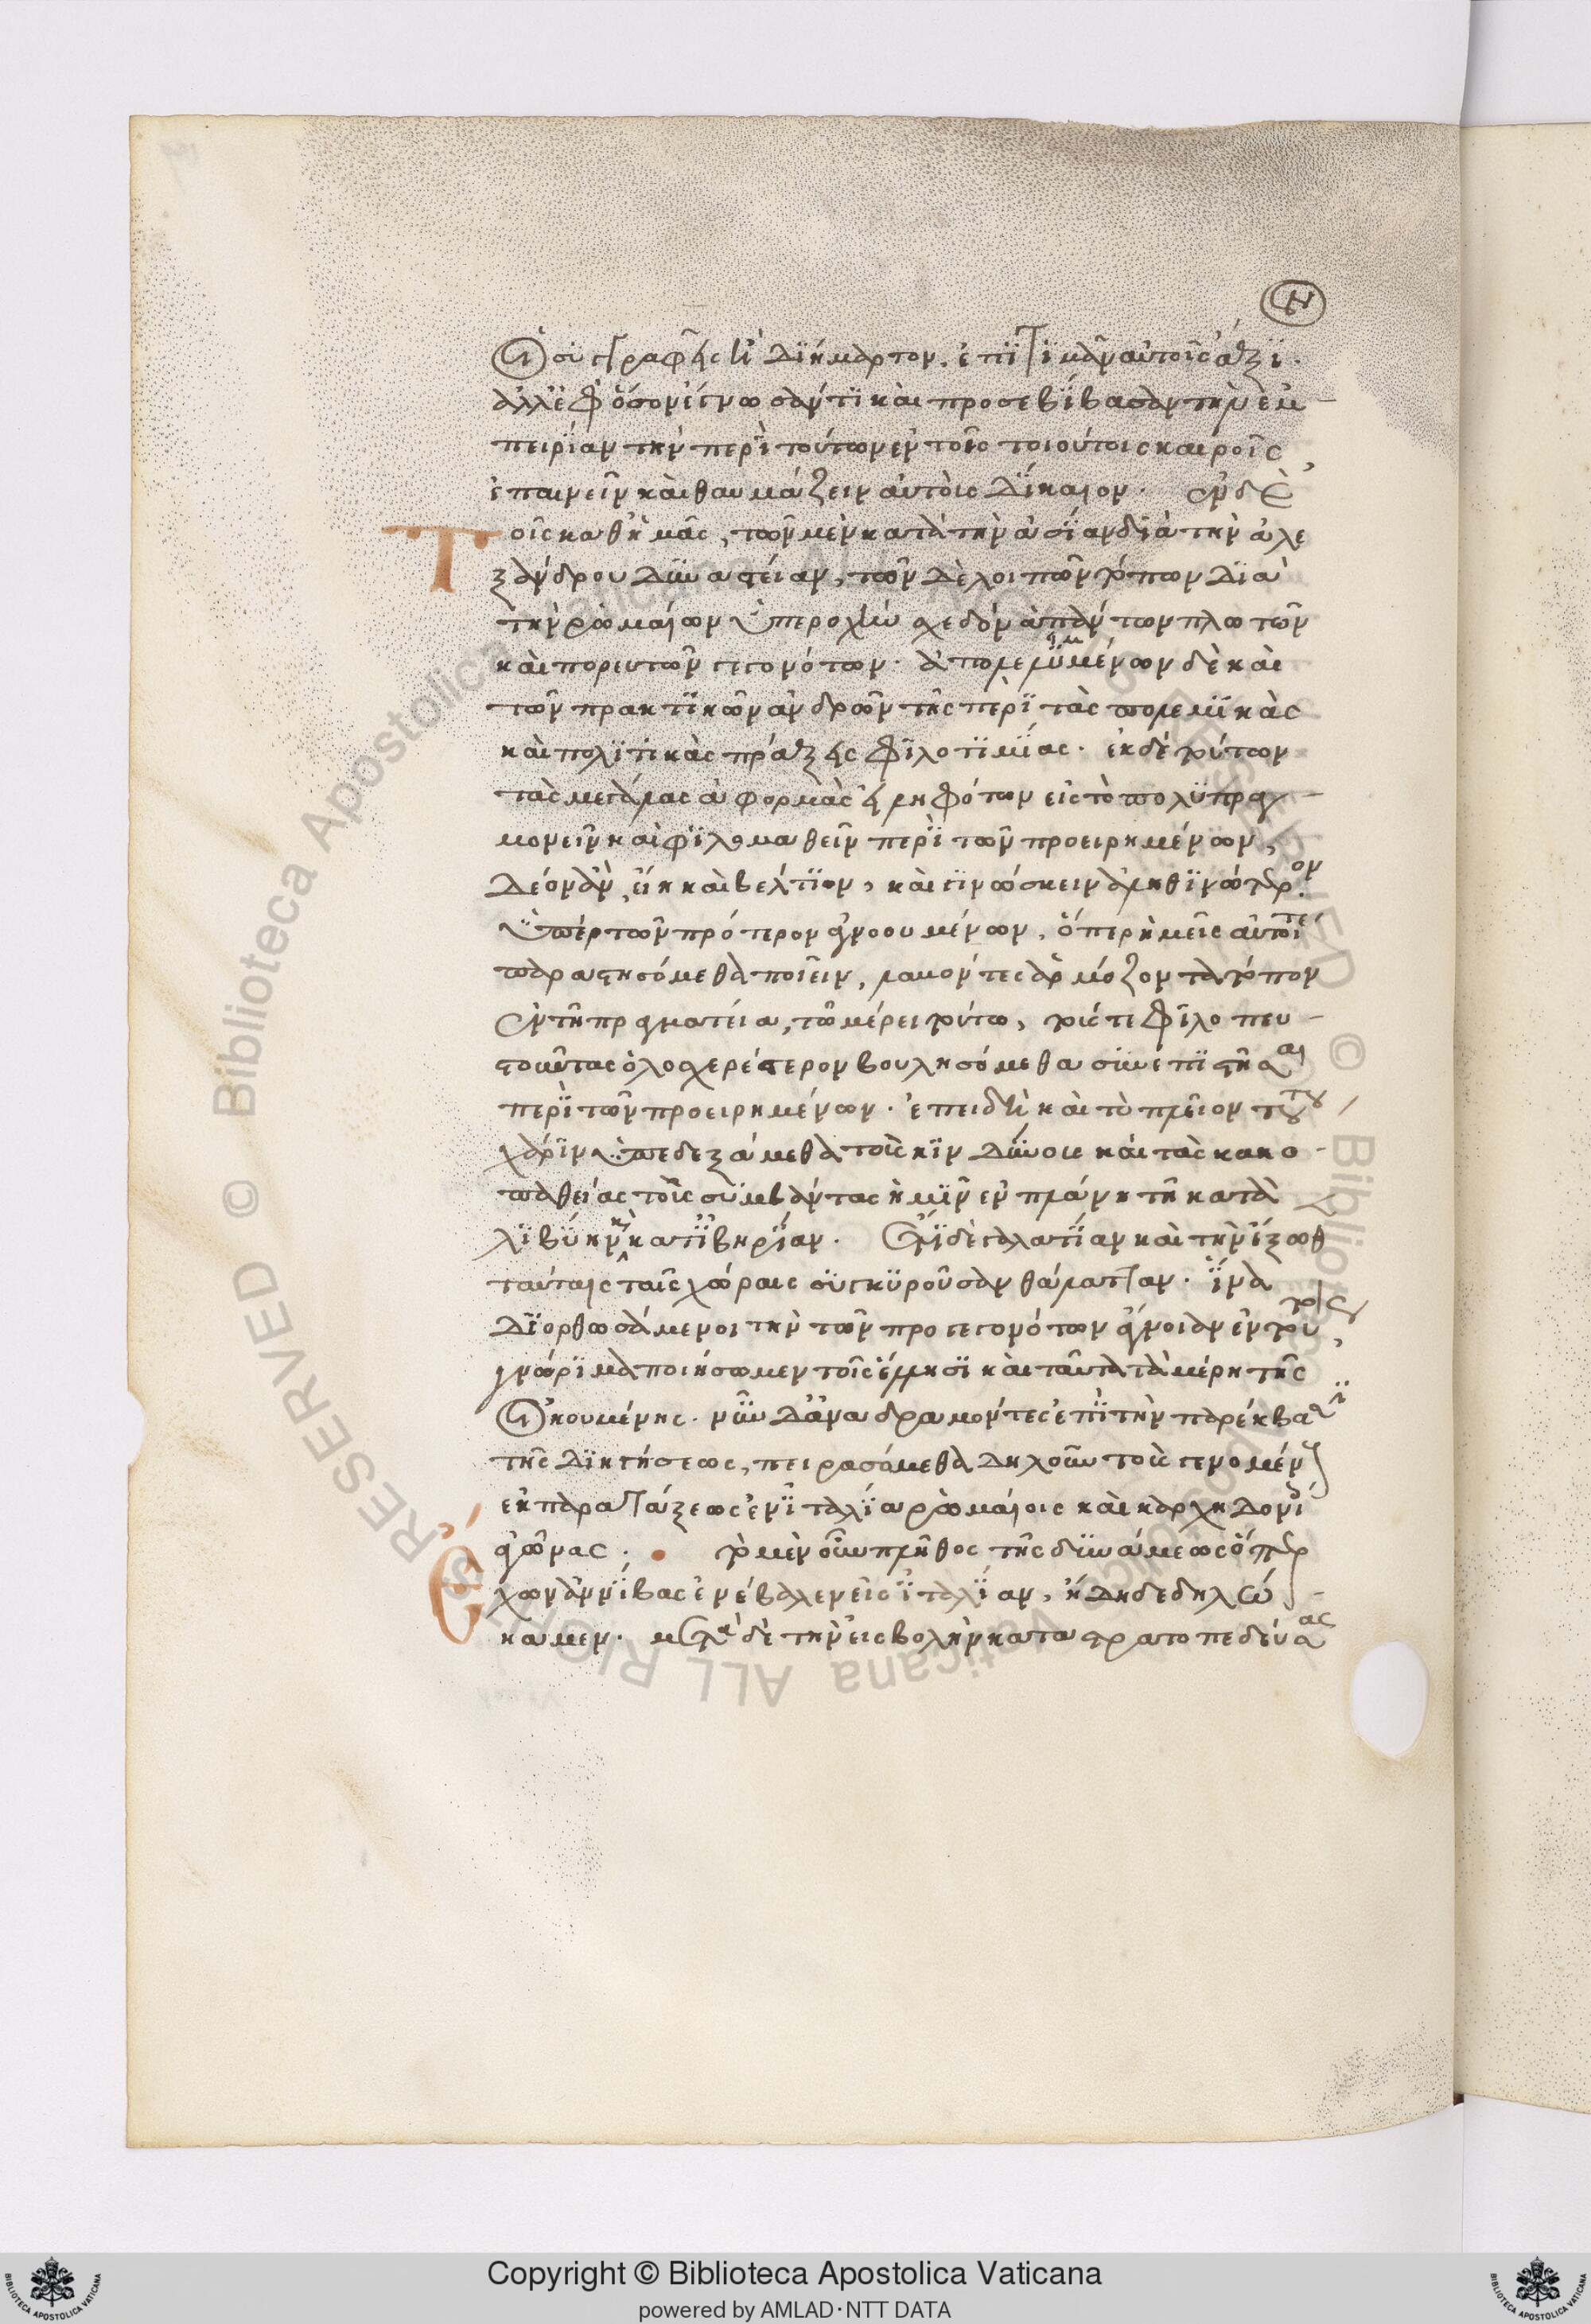 οἱ συγγραφεῖς ἢ διήμαρτον. ἐπιτιμᾶν αὐτοῖς ἄξι-
ἀλλ' ἐφ' ὅσον ἔγνωσάν τι καὶ προσεβίβασαν τὴν ἐμ-
πειρίαν τὴν περὶ τούτων ἐν τοῖς τοιούτοις καιροῖς
ἐπαινεῖν καὶ θαυμάζειν αὐτοὺς δίκαιον. ἐν δὲ
Τοῖς καθ' ἡμᾶς, τῶν μὲν κατὰ τὴν ἀσίαν διὰ τὴν ἀλε
ξάνδρου δυναστείαν, τῶν δὲ λοιπῶν τόπων διὰ
τὴν ῥωμαίων ὑπεροχὴν σχεδὸν ἁπάντων πλωτῶν
καὶ πορευτῶν γεγονότων. ἀπολελυμένων δὲ καὶ
τῶν πρακτικῶν ἀνδρῶν τῆς περὶ τὰς πολεμικὰς
καὶ πολιτικὰς πράξεις φιλοτιμίας. ἐκ δὲ τούτων
τὰς μεγάλας ἀφορμὰς εἰληφότων εἰς τὸ πολυπραγ-
μονεῖν καὶ φιλομαθεῖν περὶ τῶν προειρημένων,
δέον ἂν εἴη καὶ βέλτιον, καὶ γινώσκειν ἀληθινώτερον
ὑπὲρ τῶν πρότερον ἀγνοουμένων. ὅπερ ἡμεῖς αὐτοί τε
παραστησόμεθα ποιεῖν, λαμόντες ἁρμόζον τὰ τόπον
ἐν τῇ πραγματεία, τῷ μέρει τούτω, τούς τε φιλοπευ-
στοῦντας ὁλοσχερέστερον βουλησόμεθα συνεπιστῆσαι
περὶ τῶν προειρημένων. ἐπειδὴ καὶ τὸ πλεῖον τούτου
χάριν ὑπεδεξάμεθα τοὺς κινδύνους καὶ τὰς κακο-
παθείας τοὺς συμβάντας ἡμῖν ἐν πλάνη τῇ κατὰ
λιβύην κ κατ' ἰβηρίαν. ἔτι δὲ γαλατίαν καὶ τὴν ἔξωθ
ταύταις ταῖς χώραις συγκυροῦσαν θάλατταν. ἵνα
διορθωσάμενοι τὴν τῶν προγεγονότων ἄγνοιαν ἐν τούτοις,
γνώριμα ποιήσωμεν τοῖς ἕλλησι καὶ ταῦτα τὰ μέρη τῆς
οἰκουμένης. νῦν δ' ἀναδραμόντες ἐπὶ τὴν παρέκβασι
τῆς διηγήσεως, πειρασόμεθα δηλοῦν τοὺς γενομέν
ἐκ παρατάξεως ἐν ἰταλία ῥωμαίοις καὶ καρχηδονί
ἀγῶνας. τὸ μὲν οὖν πλῆθος τῆς δυνάμεως ὅπερ
Ἔχων ἀννίβας ἐνέβαλεν εἰς ἰταλίαν, ἤδη δεδηλώ-
καμεν. μετὰ δὲ τὴν εἰσβολὴν καταστρατοπεδεύσας
Copyright © Biblioteca Apostolica Vaticana
powered by AMLAD·NTT DATA